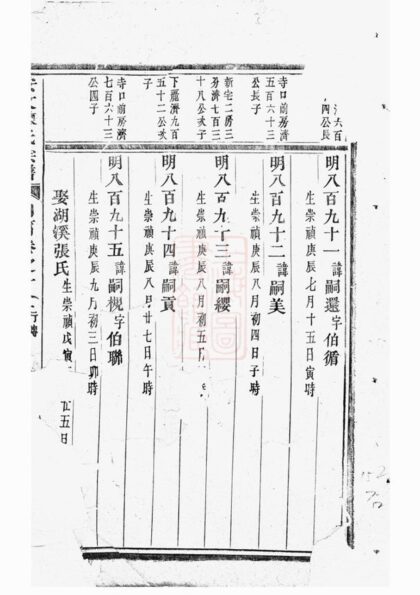 六百
四公長
明八百九十一諱嗣還字伯循
生崇禎庚辰七月十五日寅時
寺口前房濟
五百六十三
公長子
明八百九十二諱嗣美
生崇禎庚辰八月初四日子時
新宅二房三
房濟七百三
十八公次子
明八百九十三諱嗣纓
生崇禎庚辰八月初五
下麗濟九百
五十二公次
子
明八百九十四諱嗣貢
生崇禎庚辰八月廿七日午時
寺口前房濟
七百六十三
公四子
明八百九十五諱嗣槐字伯聯
生崇禎庚辰九月初三日卯時
娶湖溪張氏生崇禎戊寅
五日